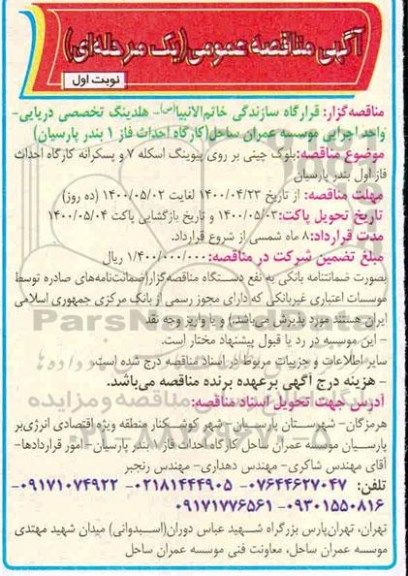 آگهی مناقصه عمومی(یک مرحله‌ای)
نوبت اول
مناقصه‌گزار: قرارگاه سازندگی خاتم‌الانبیا(ص)- هلدینگ تخصصی دریایی-
واحد اجرایی موسسه عمران ساحل(کارگاه احداث فاز ۱ بندر پارسیان)
موضوع مناقصه:بلوک چینی بر روی پیوینگ اسکله ۷ و پسکرانه کارگاه احداث
فاز اول بندر پارسیان
مهلت مناقصه: از تاریخ ۱۴۰۰/۰۴/۲۳ لغایت ۱۴۰۰/۰۵/۰۲ (ده روز)
تاریخ تحویل پاکت:۱۴۰۰/۰۵/۰۳ و تاریخ بازگشایی پاکت ۱۴۰۰/۰۵/۰۴
مدت قرارداد:۸ ماه شمسی از شروع قرارداد.
مبلغ تضمین شرکت در مناقصه:۱/۴۰۰/۰۰۰/۰۰۰ ریال
بصورت ضمانتنامه بانکی به نفع دستگاه مناقصه‌گزار(ضمانت‌نامه‌های صادره توسط
موسسات اعتباری غیربانکی که دارای مجوز رسمی از بانک مرکزی جمهوری اسلامی
ایران هستند مورد پذیرش می‌باشد) و یا واریز وجه نقد
- این موسسه در رد یا قبول پیشنهاد مختار است.
-سایر اطلاعات و جزییات مربوط در اسناد مناقصه درج شده است.
- هزینه درج آگهی برعهده برنده مناقصه می‌باشد.
آدرس جهت تحویل اسناد مناقصه:
هرمزگان- شهرستان پارسیان- شهر کوشکنار منطقه ویژه اقتصادی انرژی‌بر
پارسیان موسسه عمران ساحل کارگاه احداث فاز ۱ بندر پارسیان- امور قراردادها-
آقای مهندس شاکری- مهندس دهداری- مهندس رنجبر
تلفن: ۰۷۶۴۴۶۲۷۰۴۷-۰۲۱۸۱۴۴۴۹۰۵-۰۹۱۷۱۰۷۴۹۲۲
۰۹۳۰۱۵۵۰۸۱۶-۰۹۱۷۱۷۷۶۵۶۱
تهران، تهران‌پارس بزرگراه شهید عباس دوران(اسبدوانی) میدان شهید مهتدی
موسسه عمران ساحل، معاونت فنی موسسه عمران ساحل